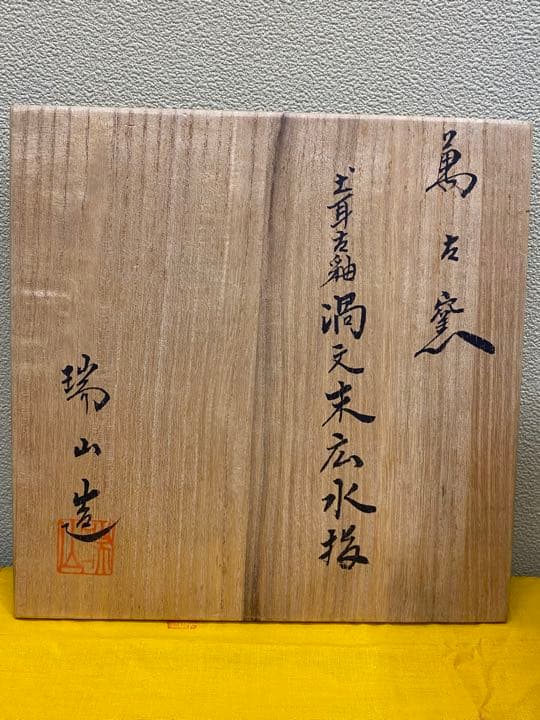 萬古窯
圡耳古釉渦文末広水指
瑞山造